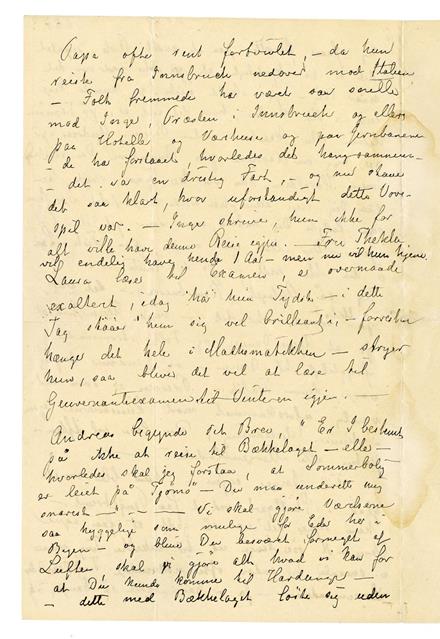 Papa ofte rent fortvivlet, – da hun
reiste fra Innsbruck nedover mod Italien
– Folk fremmede har vært saa snille
mod Inge, Præsten i Innsbruck og ellers
paa Hotelle og Værelse og paa Jernbanene
– de har forstaaet, hvorledes det hang sammen –
– det var en dristig Fart, – og nu staar
det saa klart, hvor uforstandigt dette Vove-
spil var. – Inge skrev, hun ikke for
alt ville have denne Reise igjen. – Fru Thekla
vil endelig have hende 1 Aar – men nu vil hun hjem.
Laura læser til Examen, er overmaade
exaltert, idag har hun Tydsk – i dette
Fag staar hun sig vel brilliant, – forresten
hænger det hele i Mathematikken – stryger
hun, saa bliver det vel at læse til
Guvernanteexamen til Vinteren igjen. –
Andreas begynder sit Brev, "Er I bestemt
på ikke at reise til Bækkelaget – eller –
hvorledes skal jeg forstaa, at Sommerbolig
er leiet på Tjømø – Du maa underrette mig
snarest – " – – Vi skal gjøre Værelserne
saa hyggelige som mulige for Eder her i
Byen – og bliver Du besværet formeget af
Luften skal vi gjøre alt hvad vi kan for
at Du kunde komme til Hardanger –
– dette med Bækkelaget løste sig uden